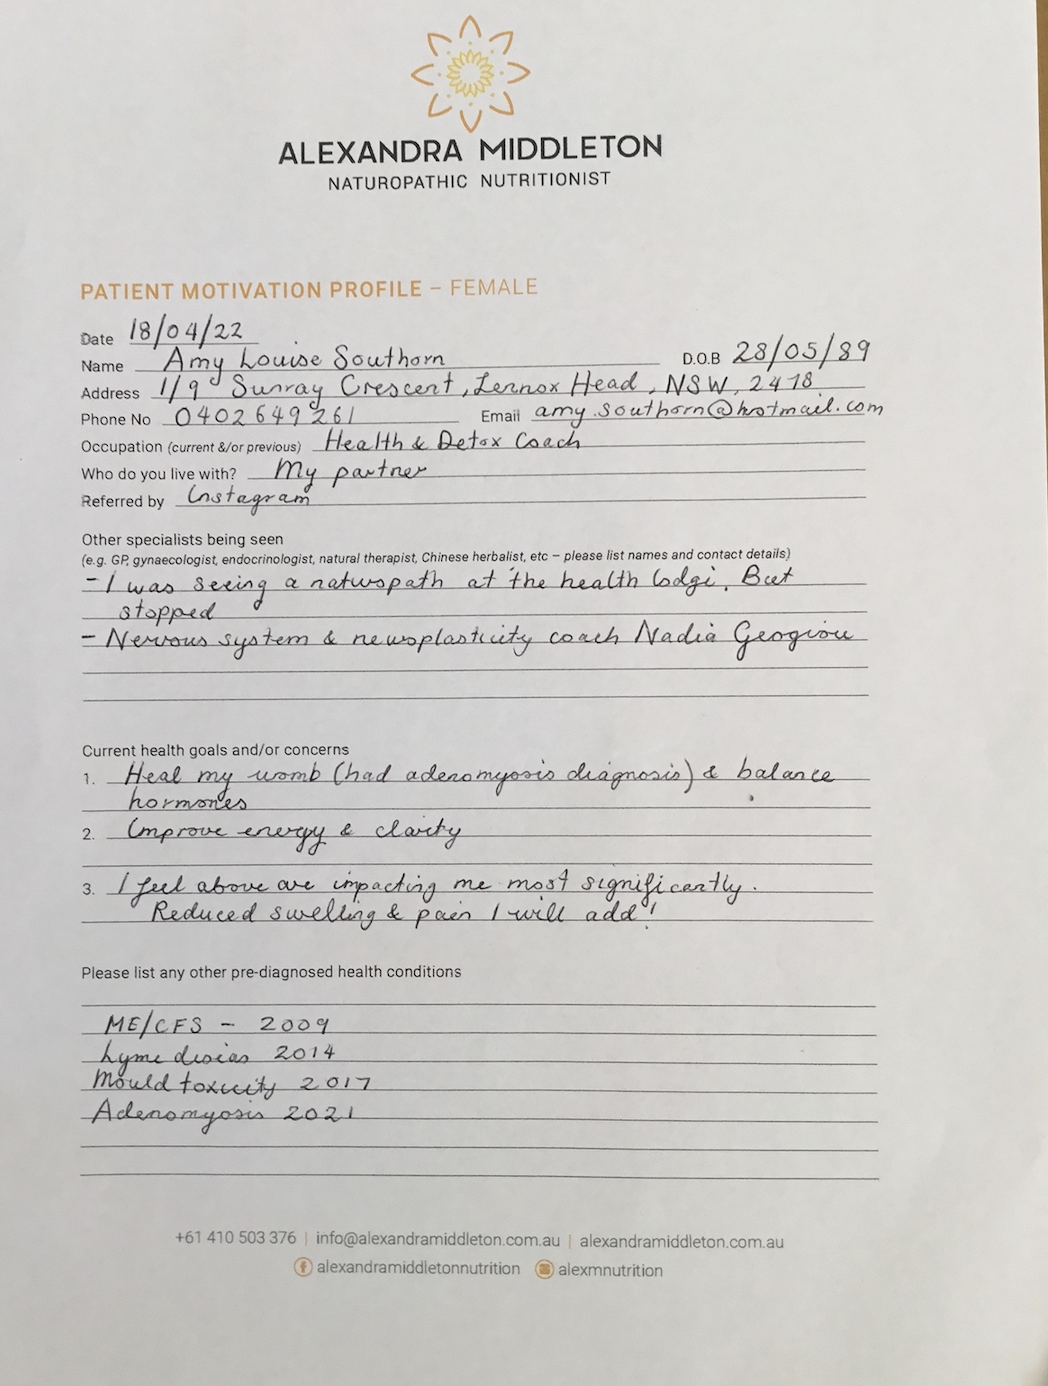 ALEXANDRA MIDDLETON
NATUROPATHIC NUTRITIONIST
PATIENT MOTIVATION PROFILE – FEMALE
Date 18/04/22
Name Amy Louise Southorn D.O.B 28/05/89
Address 1/9 Sunray Crescent, Lennox Head, NSW, 2478
Phone No 0402649261 Email amy.southorn@hotmail.com
Occupation (current &/or previous) Health & Detox Coach
Who do you live with? My partner
Referred by Instagram
Other specialists being seen
(e.g. GP, gynaecologist, endocrinologist, natural therapist, Chinese herbalist, etc – please list names and contact details)
- I was seeing a naturopath at the health lodge. But
stopped
- Nervous system & neuroplasticity coach Nadia Georgiou
Current health goals and/or concerns
1. Heal my womb (had adenomyosis diagnosis) & balance
hormones
2. Improve energy & clarity
3. I feel above are impacting me most significantly.
Reduced swelling & pain I will add!
Please list any other pre-diagnosed health conditions
ME/CFS - 2009
Lyme 2014
Mould toxicity 2017
Adenomyosis 2021
+61 410 503 376 | info@alexandramiddleton.com.au | alexandramiddleton.com.au
alexandramiddletonnutrition alexmnutrition